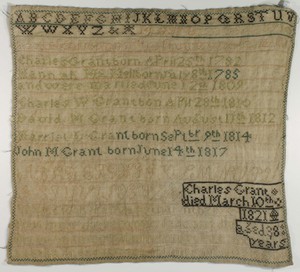 ABCDEFGHIJKLMNOPQRSTUV
WXYZ&
Charles Grant born April 25th 1782
born July 8th 1785
and were married June 12th 1809
Charles W Grant born April 28th 1810
David M Grant born August 11th 1812
Harriet Grant born Sept br 9th 1814
John M Grant born June 14th 1817
Charles Grant
died March 10th
1821
aged 38
years